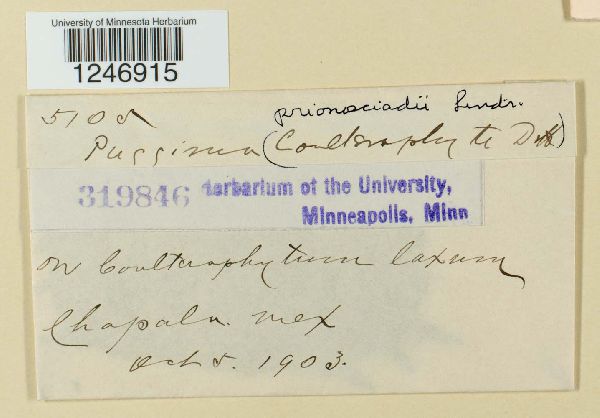 University of Minnesota Herbarium
1246915
prionosciadii Lindr.
5105
Puccinia (Coulterophyti D&H)
319846 Herbarium of the University,
Minneapolis, Minn
on Coulterophytum laxum
Chapala. Mex
Oct 5. 1903.